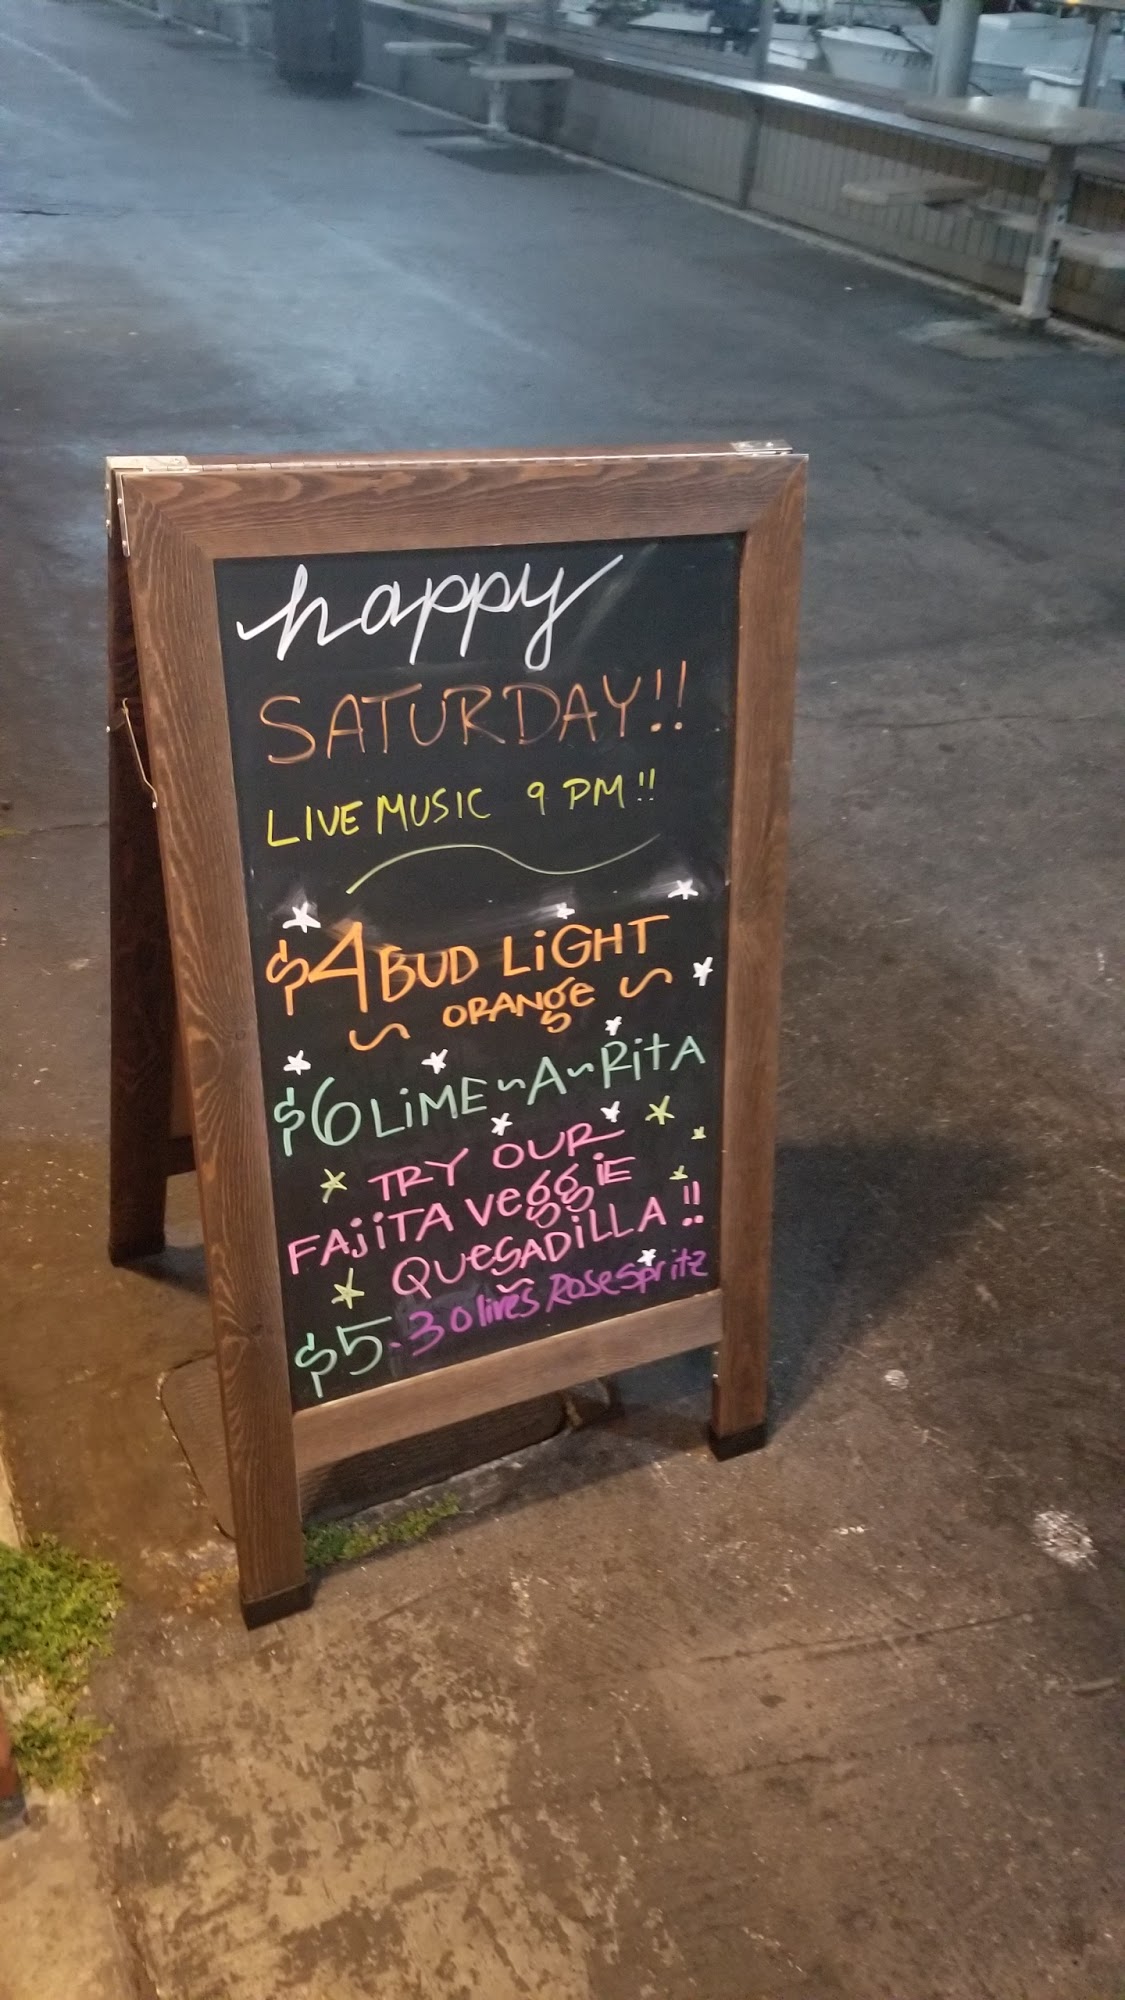 happy
SATURDAY!!
LIVE MUSIC 9 PM!!
$4 BUD LiGHT
~ ORANge ~
$6 LiME~A~RitA
TRY OUR
FAjiTA VeggiE
QUeSADiLLA!!
$5.3 Olives RoseSpritz